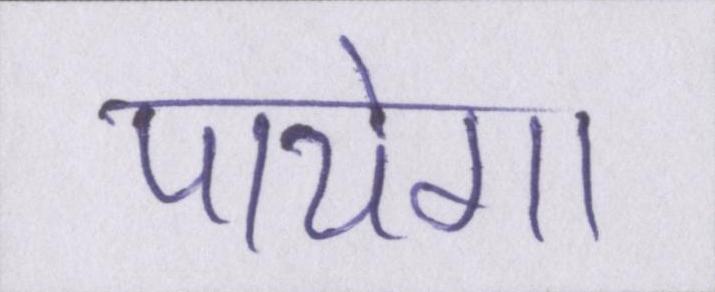 पायेगा